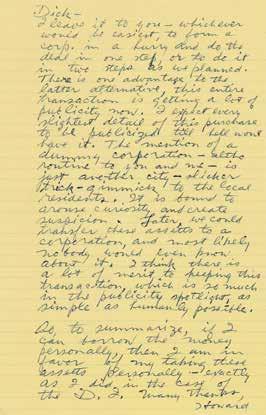 Dick—
I leave it to you — whichever
would be easiest, to form a
corp. in a hurry and do the
deal in one step, or to do it
in two steps as we planned.
There is one advantage to the
latter alternative, this entire
transaction is getting a lot of
publicity now. I expect every
slightest detail of this purchase
to be publicized till hell wont
have it. The mention of a
dummy corporation — altho
routine to you and me — is
just another city-slicker
trick-gimmick to the local
residents. It is bound to
arouse curiosity and create
suspicion. Later, we could
transfer these assets to a
corporation, and most likely,
nobody would even know
about it. I think there is
a lot of merit to keeping this
transaction, which is so much
in the publicity spotlight, as
simple as humanly possible.
So, to summarize, if I
can borrow the money
personally, then I am in
favor of my taking these
assets personally — exactly
as I did in the case of
the D. I. Many thanks,
Howard